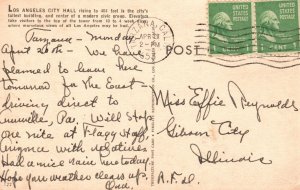 LOS ANGELES CITY HALL rising to 464 feet is the city's
tallest building, and center of a modern civic group. Elevators
take visitors to the top of the tower from 10 to 4 week-days
where marvelous views of all Los Angeles may be had.
Tarzana - Monday
April 28th - We have
planned to leave here
tomorrow for the East -
driving direct to
, Pa. Will stop
one nite at Flagg Staff,
Arizona with relatives
Had a nice rain here today.
Hope your weather clears up.
APR 28
2 - PM
POST
Miss Effie Reynolds
Gibson City
Illinois
R.F.D.